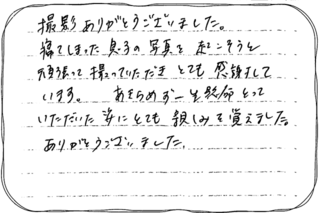 撮影ありがとうございました。
寝てしまった息子の写真を起こそうと
頑張って撮っていただきとても感謝して
います。あきらめず一生懸命とって
いただいた姿にとても親しみを覚えました。
ありがとうございました。